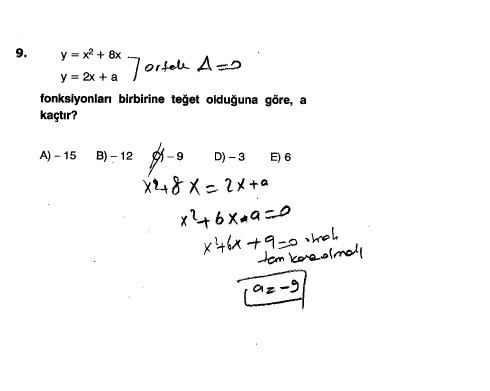 9. y = x² + 8x
y = 2x + a
ortak Δ=0
fonksiyonları birbirine teğet olduğuna göre, a
kaçtır?
A) – 15 B) – 12 C) – 9 D) – 3 E) 6
x²+8x = 2x+a
x²+6x-a=0
x²+6x+9=0 olmalı
tam kare olmalı
a=-9